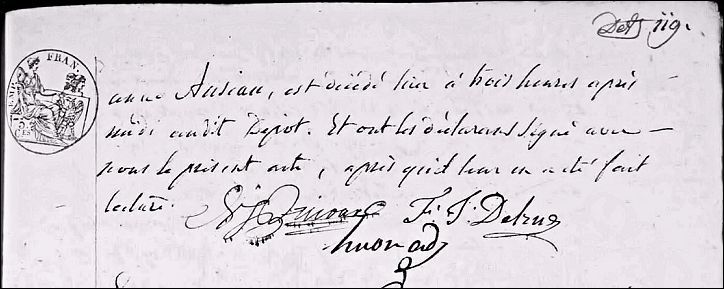 119.
EMP. FRAN.
anne Auseau, est décédé hier à trois heures après
midi audit Dépôt. Et ont les déclarans signé avec
nous le présent acte, après qu'il leur en a été fait
lecture.
F. J. Delrue